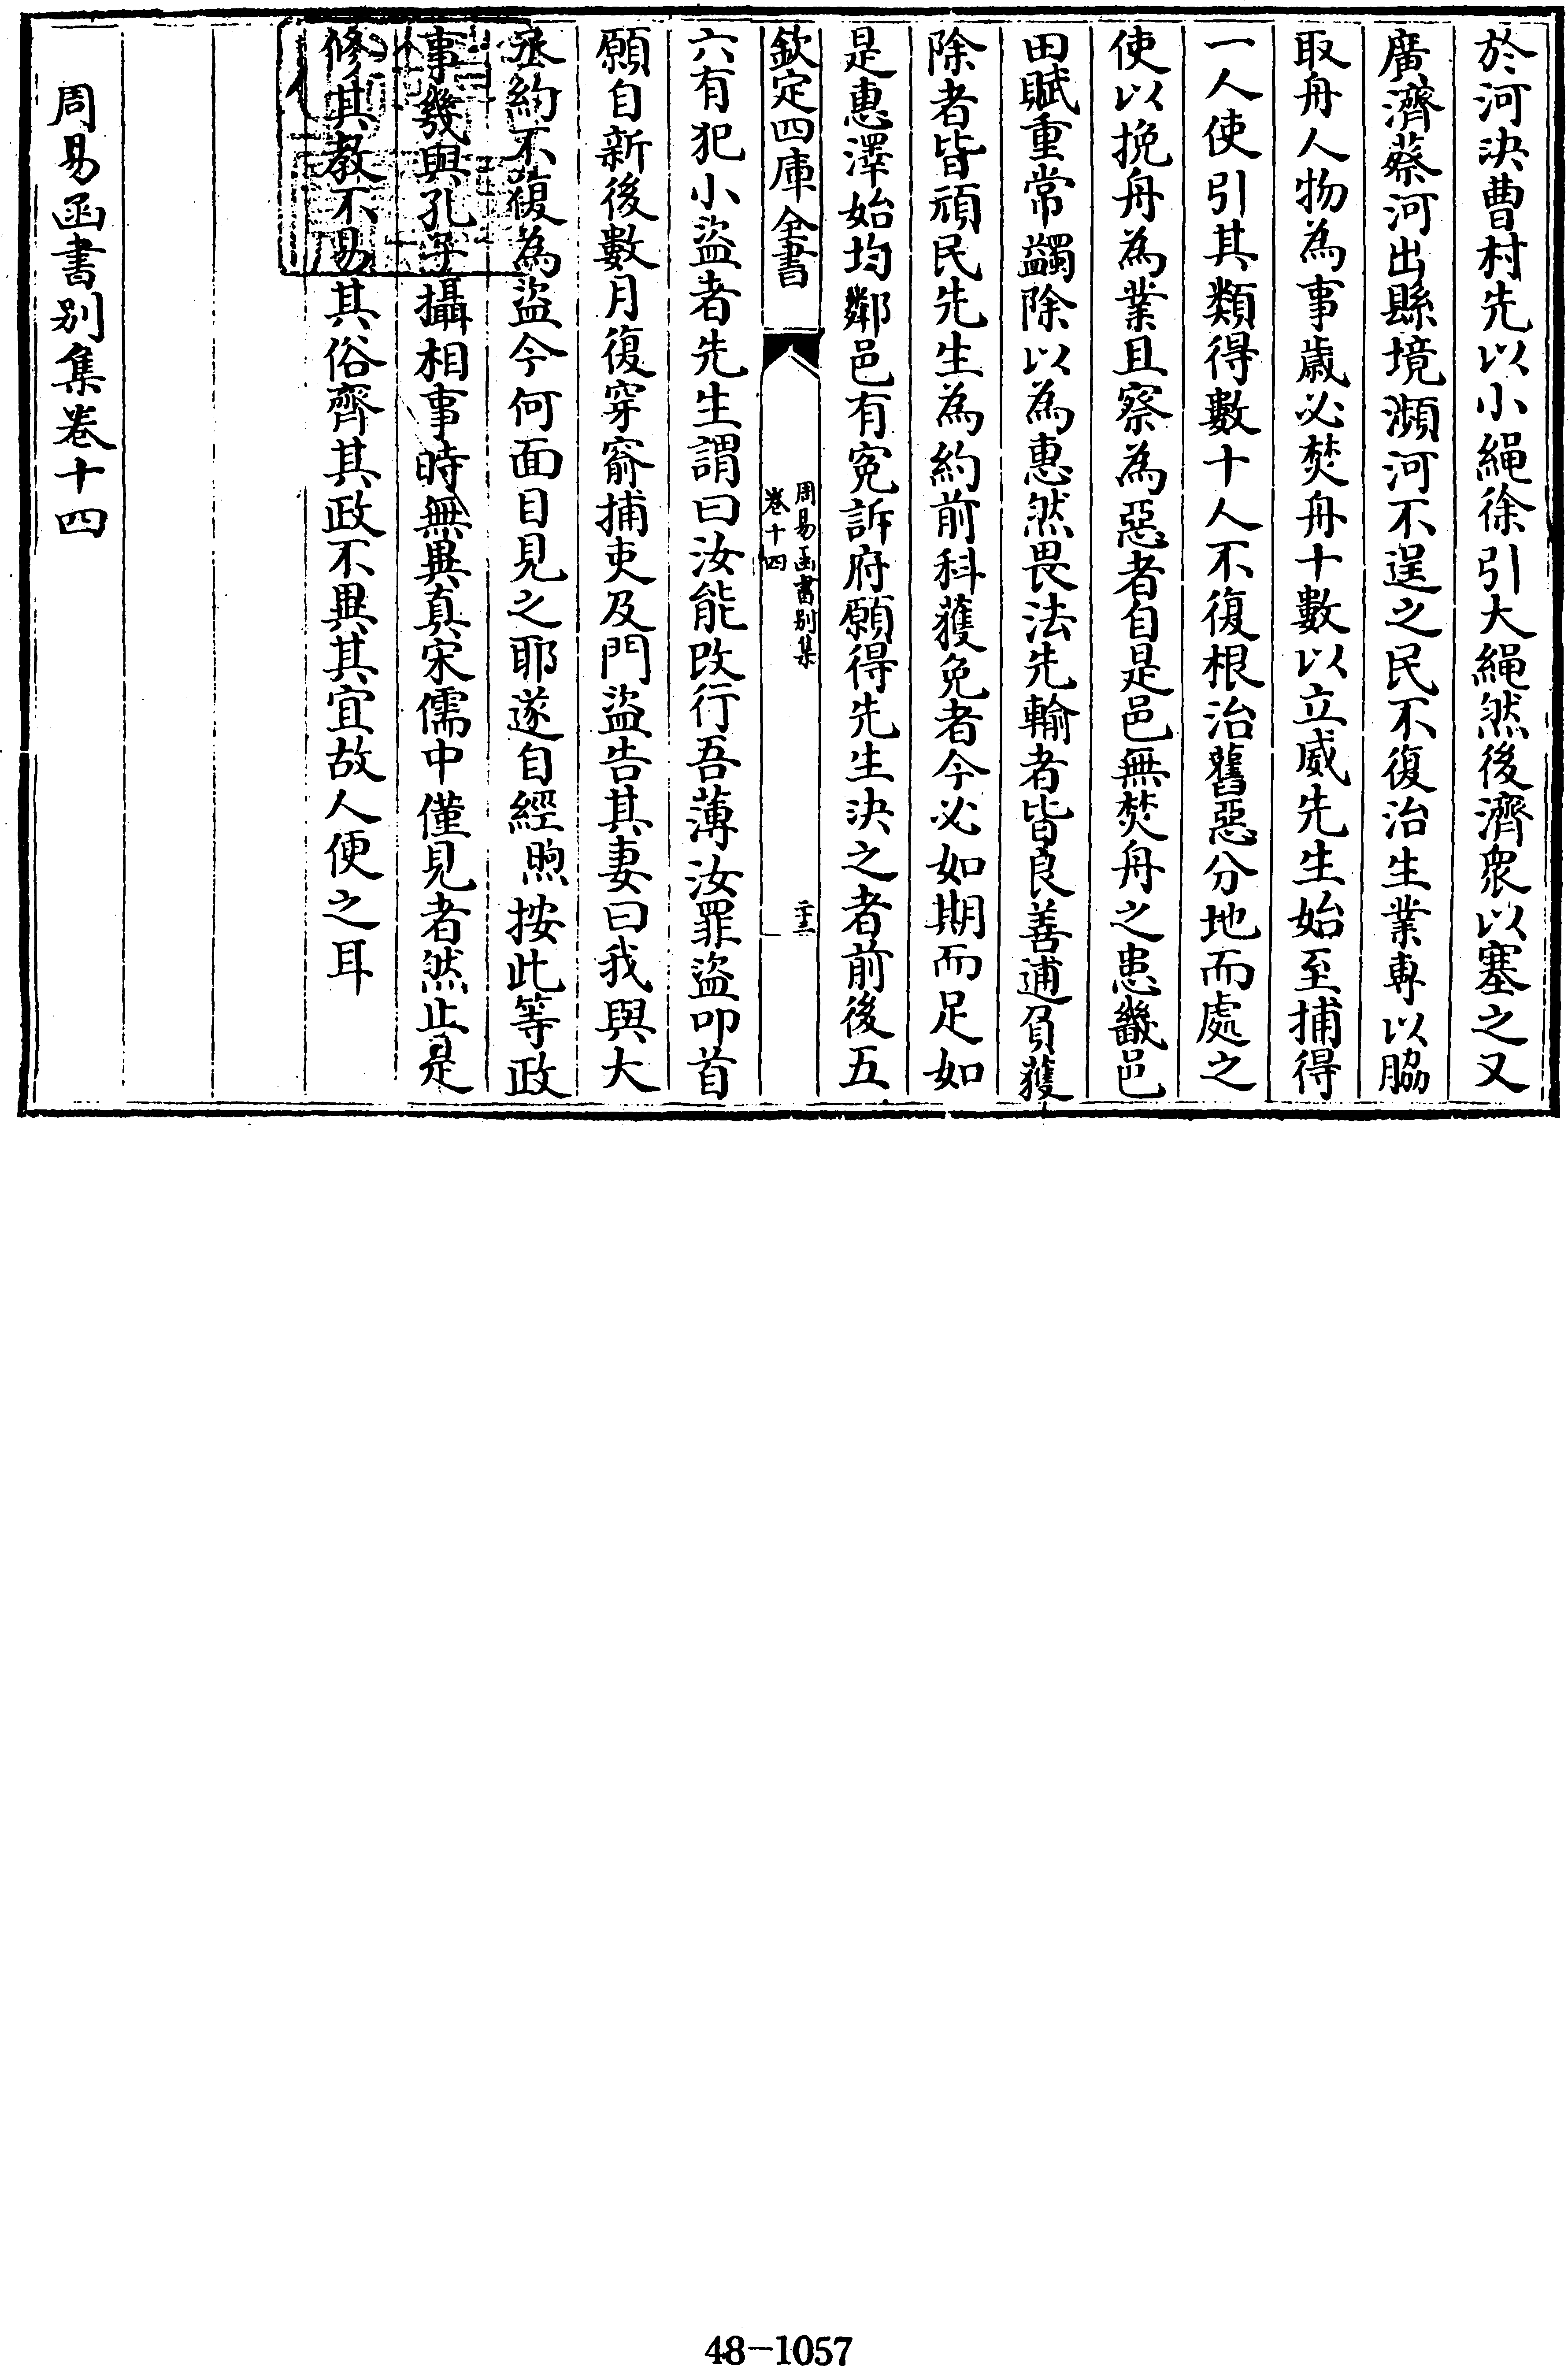 於河決曹村先以小繩徐引大繩然後濟衆以塞之又
廣濟蔡河出縣境瀕河不逞之民不復治生業專以脇
取舟人物為事歲必焚舟十數以立威先生始至捕得
一人使引其類得數十人不復根治舊惡分地而處之
使以挽舟為業且察為惡者自是邑無焚舟之患畿邑
田賦重常蠲除以為惠然畏法先輸者皆良善逋負獲
除者皆頑民先生為約前科獲免者今必如期而足如
是惠澤始均鄰邑有寃訴府願得先生決之者前後五
欽定四庫全書
周易函書别集
卷十四
二十三
六有犯小盜者先生謂曰汝能改行吾薄汝罪盜叩首
願自新後數月復穿窬捕吏及門盜告其妻曰我與大
丞約不復為盜今何面目見之耶遂自經煦按此等政
事幾與孔子攝相事時無異真宋儒中僅見者然止是
修其教不易其俗齊其政不異其宜故人便之耳
周易函書别集卷十四
48-1057